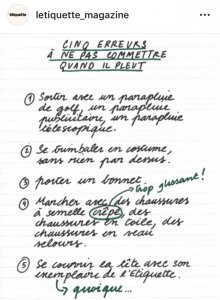 létiquette
letiquette_magazine
CINQ ERREURS
À NE PAS COMMETTRE
QUAND IL PLEUT
① Sortir avec un parapluie
de golf, un parapluie
publicitaire, un parapluie
télescopique.
② Se trimbaler en costume,
sans rien par dessus.
③ porter un bonnet.
trop glissant!
④ Marcher avec des chaussures
à semelle crêpe, des
chaussures en toile, des
chaussures en veau
velours.
⑤ Se couvrir la tête avec son
exemplaire de l'Étiquette.
quoique...